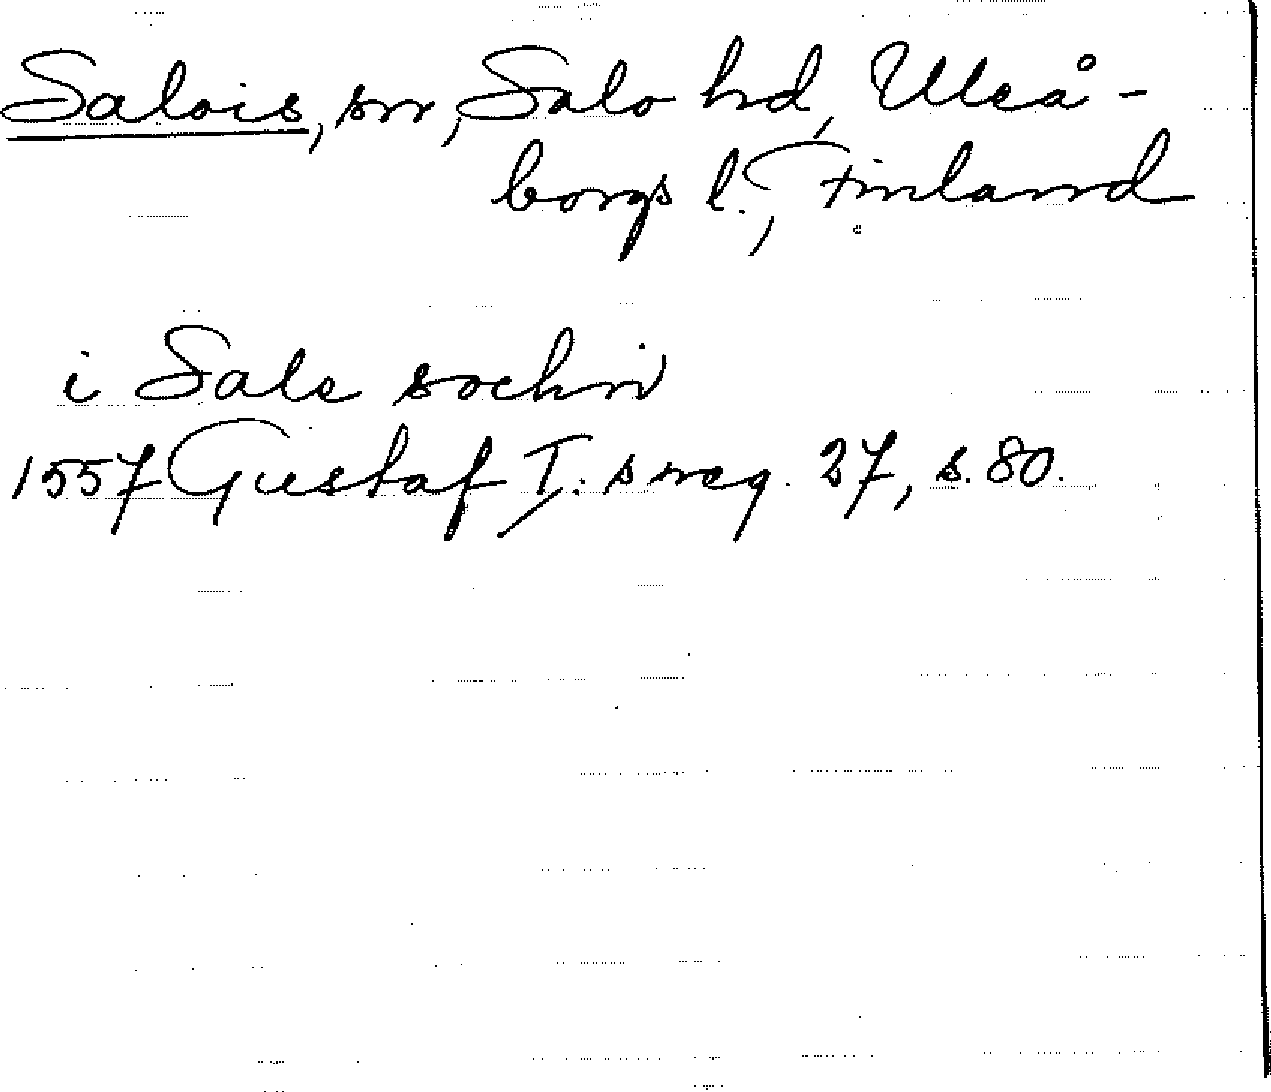 Salois, sn, Salo hd, Uleå-
borgs l., Finland
i Sale sochn
1557 Gustaf I:s reg. 27, s. 80.